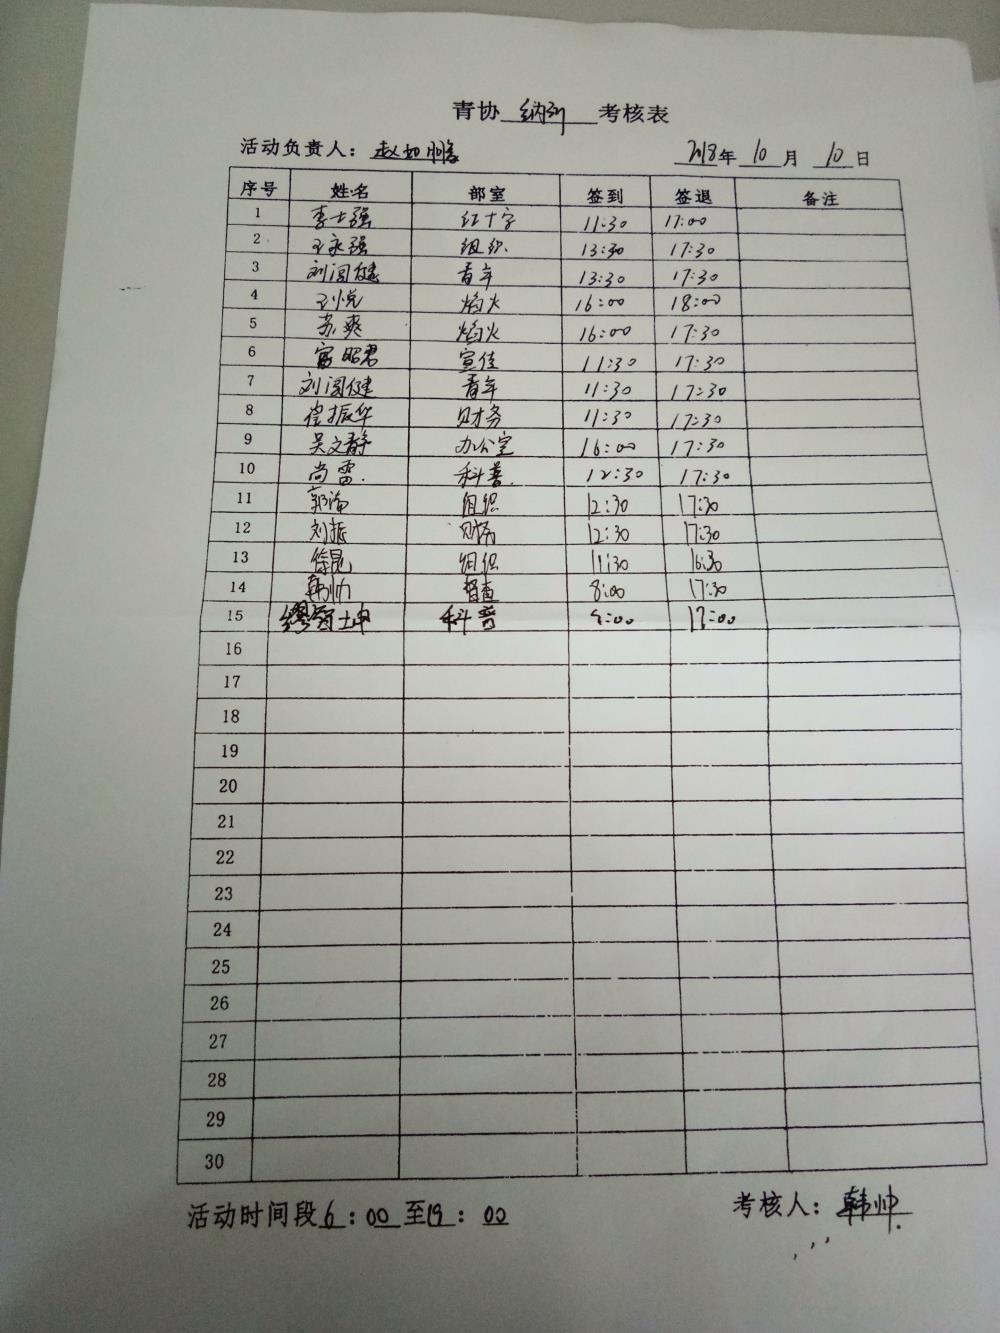 青协 纳新 考核表
活动负责人：赵如鹏 2018年 10 月 10 日
序号 姓名 部室 签到 签退 备注
1 李士强 红十字 11:30 17:00
2 王永强 组织 13:30 17:30
3 刘闯健 青年 13:30 17:30
4 王悦 焰火 16:00 18:00
5 苏爽 焰火 16:00 17:30
6 昭君 宣传 11:30 17:30
7 刘闯健 青年 11:30 17:30
8 崔振华 财务 11:30 17:30
9 吴文静 办公室 16:00 17:30
10 尚雷 科普 12:30 17:30
11 郭海 组织 12:30 17:30
12 刘振 财务 12:30 17:30
13 徐昆 组织 11:30 16:30
14 韩帅 督查 8:00 17:30
15 坤 科普 17:00
16
17
18
19
20
21
22
23
24
25
26
27
28
29
30
活动时间段 6:00 至 19:00 考核人：韩帅